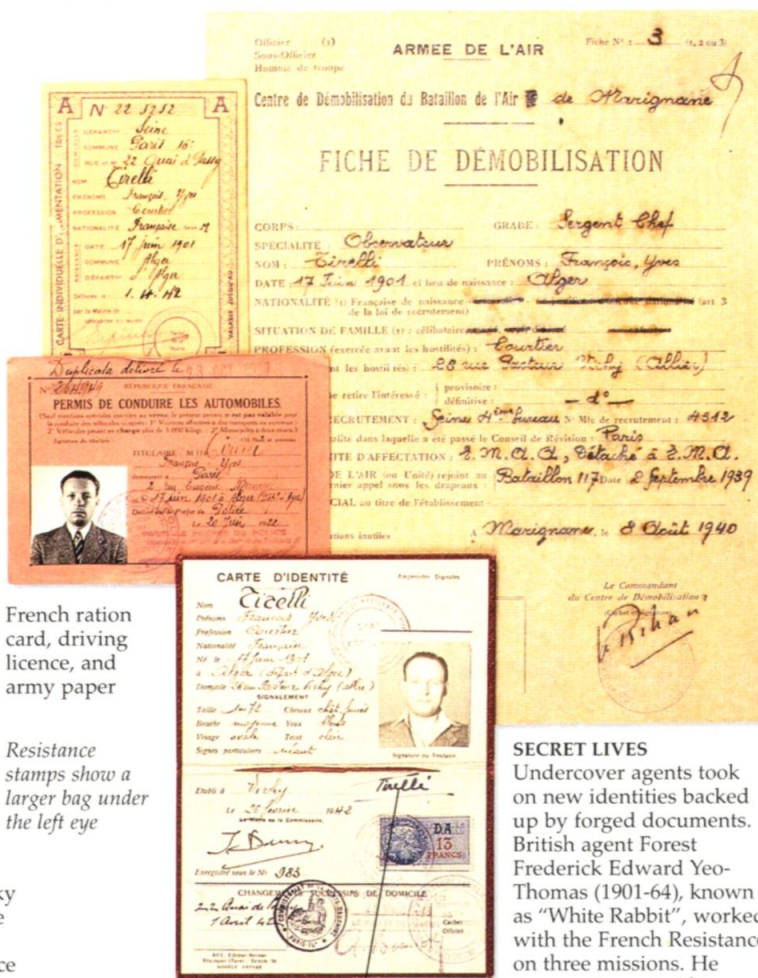 Officier (1)
Sous-Officier
Homme de troupe
ARMEE DE L'AIR
Fiche N° : 3 (1, 2 ou 3)
Centre de Démobilisation du Bataillon de l'Air de Marignane
FICHE DE DÉMOBILISATION
CORPS : GRADE : Sergent Chef
SPÉCIALITÉ Observateur
NOM : Tirelli PRÉNOMS : François, Yves
DATE : 17 Juin 1901 et lieu de naissance : Alger
NATIONALITÉ (1) Française de naissance (art 3
de la loi de recrutement)
SITUATION DE FAMILLE (1) : célibataire
PROFESSION (exercée avant les hostilités) : Courtier
nt les hostilités : 28 rue Pasteur Vichy (Allier)
se retire l'intéressé : provisoire :
définitive : d°
RECRUTEMENT : Seine 4ème bureau N° Mle de recrutement : 4312
alité dans laquelle a été passé le Conseil de Révision : Paris
ITÉ D'AFFECTATION : Détaché à
DE L'AIR (ou Unité) rejoint au
nier appel sous les drapeaux : Bataillon 117 Date 2 Septembre 1939
CIAL au titre de l'établissement
ations inutiles A Marignane, le 8 Août 1940
Le Commandant
du Centre de Démobilisation
A N 22 5252 A
CARTE INDIVIDUELLE D'ALIMENTATION
DÉPARTt Seine
COMMUNE Paris 16e
RUE et N° 22 Quai d'Passy
NOM Tirelli
PRÉNOMS François, Yves
PROFESSION Courtier
NATIONALITÉ Française
DATE 17 juin 1901
COMMUNE Alger
DÉPARTt d'Alger
1. 4. 42
Duplicata délivré le
RÉPUBLIQUE FRANÇAISE
PERMIS DE CONDUIRE LES AUTOMOBILES
TITULAIRE
François Yves
Paris
17 juin 1901 à Alger
Police
Le 20 Juin 1922
CARTE D'IDENTITÉ
Empreintes Digitales
Nom Tirelli
Prénoms François Yves
Profession Courtier
Nationalité Française
Né le 17 juin 1901
à Alger (dépt d'Alger)
Domicile 28 rue Pasteur Vichy (Allier)
SIGNALEMENT
Taille 1m72 Cheveux chât. foncés
Bouche moyenne Yeux bleus
Visage ovale Teint clair
Signes particuliers néant
Signature du Titulaire
Tirelli
Etabli à Vichy
Le 26 février 1942
DA
13
FRANCS
Enregistré sous le No 983
CHANGEMENTS SUCCESSIFS DE DOMICILE
22 Quai de Passy
1 Avril 42
Cachet
Officiel
French ration
card, driving
licence, and
army paper
Resistance
stamps show a
larger bag under
the left eye
ky
e
ce
SECRET LIVES
Undercover agents took
on new identities backed
up by forged documents.
British agent Forest
Frederick Edward Yeo-
Thomas (1901-64), known
as "White Rabbit", worked
with the French Resistance
on three missions. He